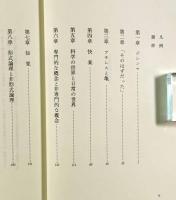 凡例
謝辞
第一章 ジレンマ
第二章 「そのはずだった」
第三章 アキレスと亀
第四章 快楽
第五章 科学の世界と日常の世界
第六章 専門的な概念と非専門的な概念
第七章 知覚
第八章 形式論理と非形式論理